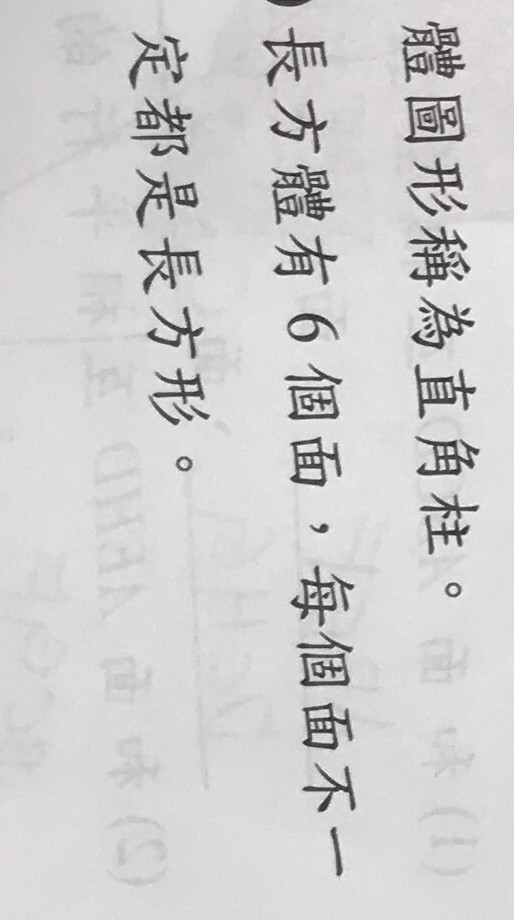 體圖形稱為直角柱。
長方體有6個面，每個面不一
定都是長方形。